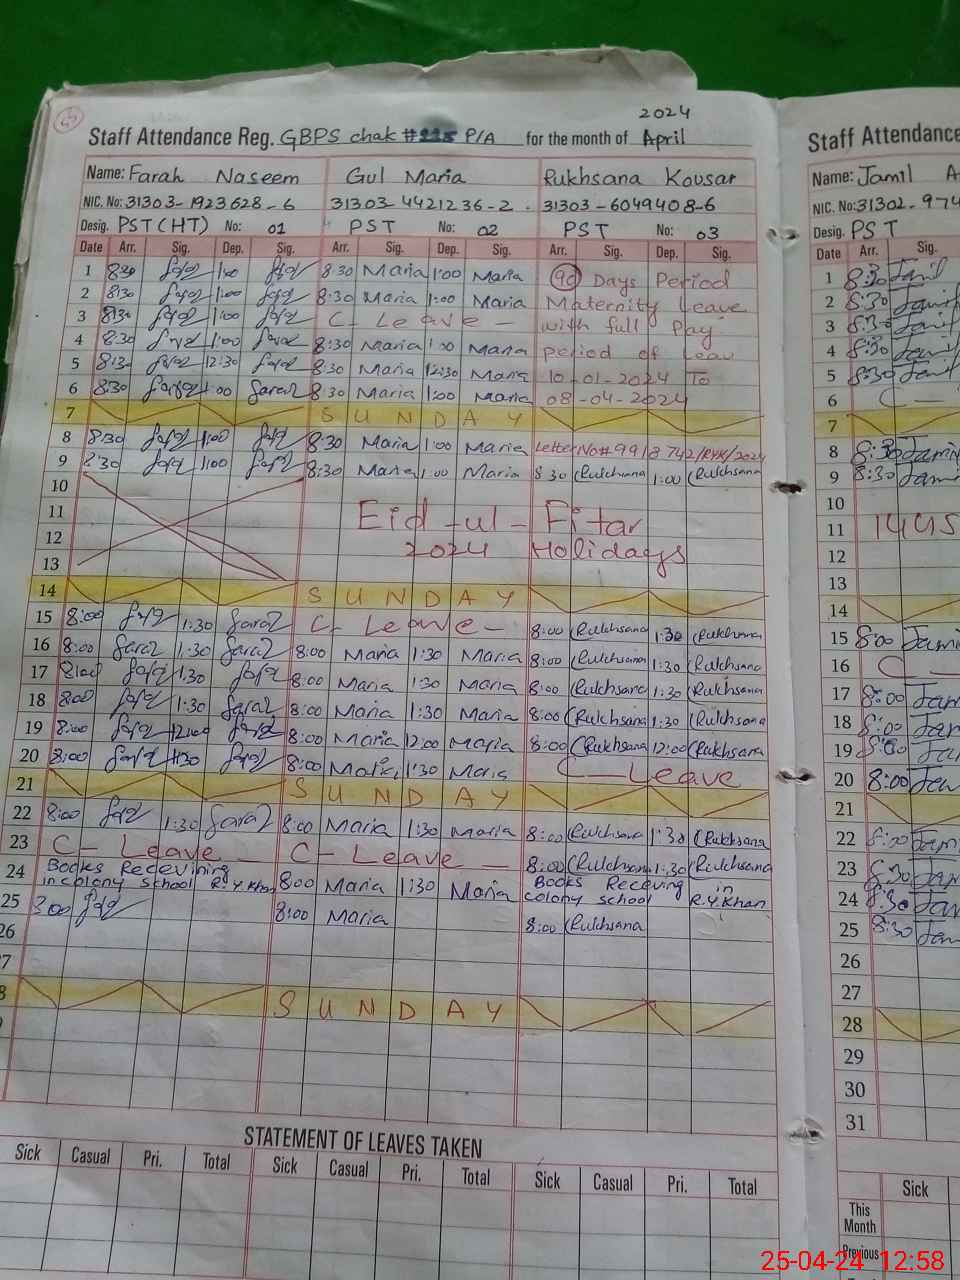 2024
Staff Attendance Reg. GBPS chak # P/A for the month of April
Name: Farah Naseem Gul Maria Rukhsana Kousar
NIC. No: 31303-1923628-6 31303-4421236-2 31303-6049408-6
Desig. PST (HT) No: 01 PST No: 02 PST No: 03
Date Arr. Sig. Dep. Sig. Arr. Sig. Dep. Sig. Arr. Sig. Dep. Sig.
1 8:30 1:00 8:30 Maria 1:00 Maria 90 Days Period
2 8:30 1:00 8:30 Maria 1:00 Maria Maternity Leave
3 8:30 1:00 C- Leave - with full Pay
4 8:30 1:00 8:30 Maria 1:00 Maria period of Leav
5 8:30 12:30 8:30 Maria 12:30 Maria 10-01-2024 To
6 8:30 1:00 8:30 Maria 1:00 Maria 08-04-2024
7 SUNDAY
8 8:30 1:00 8:30 Maria 1:00 Maria Letter No#
9 8:30 1:00 8:30 Maria 1:00 Maria 8:30 Rukhsana 1:00 Rukhsana
10
11 Eid-ul-Fitar
12 2024 Holidays
13
14 SUNDAY
15 8:00 1:30 C- Leave- 8:00 Rukhsana 1:30 Rukhsana
16 8:00 1:30 8:00 Maria 1:30 Maria 8:00 Rukhsana 1:30 Rukhsana
17 8:00 1:30 8:00 Maria 1:30 Maria 8:00 Rukhsana 1:30 Rukhsana
18 8:00 1:30 8:00 Maria 1:30 Maria 8:00 Rukhsana 1:30 Rukhsana
19 8:00 12:00 8:00 Maria 12:00 Maria 8:00 Rukhsana 12:00 Rukhsana
20 8:00 1:30 8:00 Maria 1:30 Maria C-Leave
21 SUNDAY
22 8:00 1:30 8:00 Maria 1:30 Maria 8:00 Rukhsana 1:30 Rukhsana
23 C- Leave C- Leave - 8:00 Rukhsana 1:30 Rukhsana
24 Books Receiving in colony school R.Y.Khan 8:00 Maria 1:30 Maria Books Receving in colony school R.Y.Khan
25 8:00 8:00 Maria 8:00 Rukhsana
26
7
8 SUNDAY
STATEMENT OF LEAVES TAKEN
Sick Casual Pri. Total Sick Casual Pri. Total Sick Casual Pri. Total
Staff Attendance
Name: Jamil A
NIC. No: 31302-974
Desig. PST
Date Arr. Sig.
1 8:30 Jamil
2 8:30 Jamil
3 8:30 Jamil
4 8:30 Jamil
5 8:30 Jamil
6 C -
7
8 8:30 Jamil
9 8:30 Jam
10
11 1445
12
13
14
15 8:00 Jami
16 C -
17 8:00 Jam
18 8:00 Jam
19 8:00 Jam
20 8:00 Jam
21
22 8:00 Jam
23 8:30 Jam
24 8:30 Jam
25 8:30 Jam
26
27
28
29
30
31
Sick
This Month
Previous
25-04-24 12:58